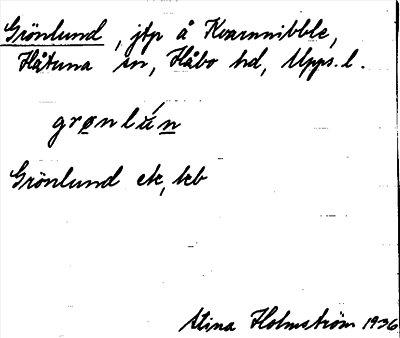 Grönlund, jtp å Kvarnnibble,
Håtuna sn, Håbo hd, Upps. l.
grønlún
Grönlund ek, kb
Stina Holmström 1936